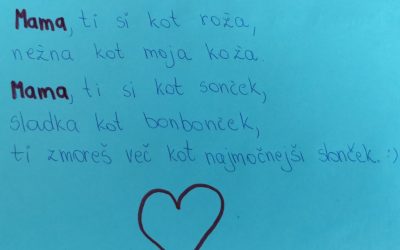 Mama, ti si kot roža,
nežna kot moja koža.
Mama, ti si kot sonček,
sladka kot bonbonček,
ti zmoreš več kot najmočnejši slonček. :)